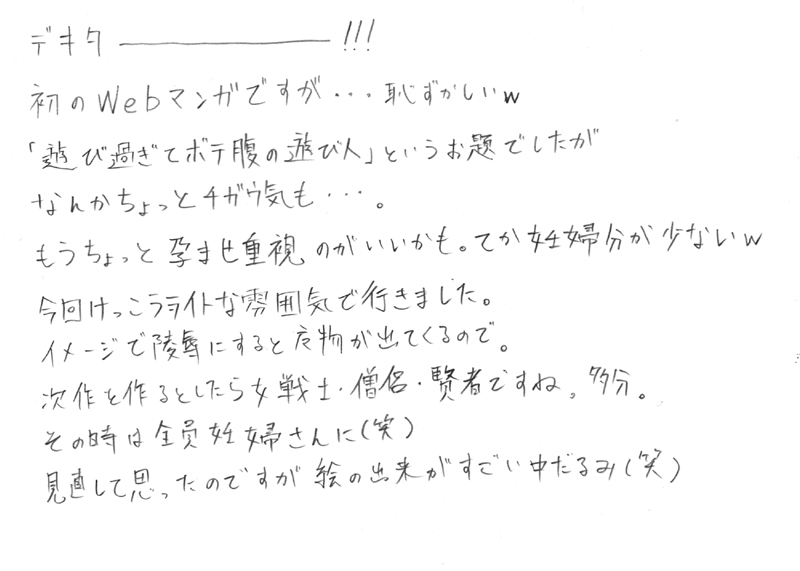 デキター――――!!!
初のWebマンガですが・・・恥ずかしいw
「遊び過ぎてボテ腹の遊び人」というお題でしたが
なんかちょっとチガウ気も・・・。
もうちょっと孕ませ重視のがいいかも。てか妊婦分が少ないw
今回けっこうライトな雰囲気で行きました。
イメージで陵辱にすると 物が出てくるので。
次作を作るとしたら女戦士・僧侶・賢者ですね。多分。
その時は全員妊婦さんに(笑)
見直して思ったのですが絵の出来がすごい中だるみ(笑)